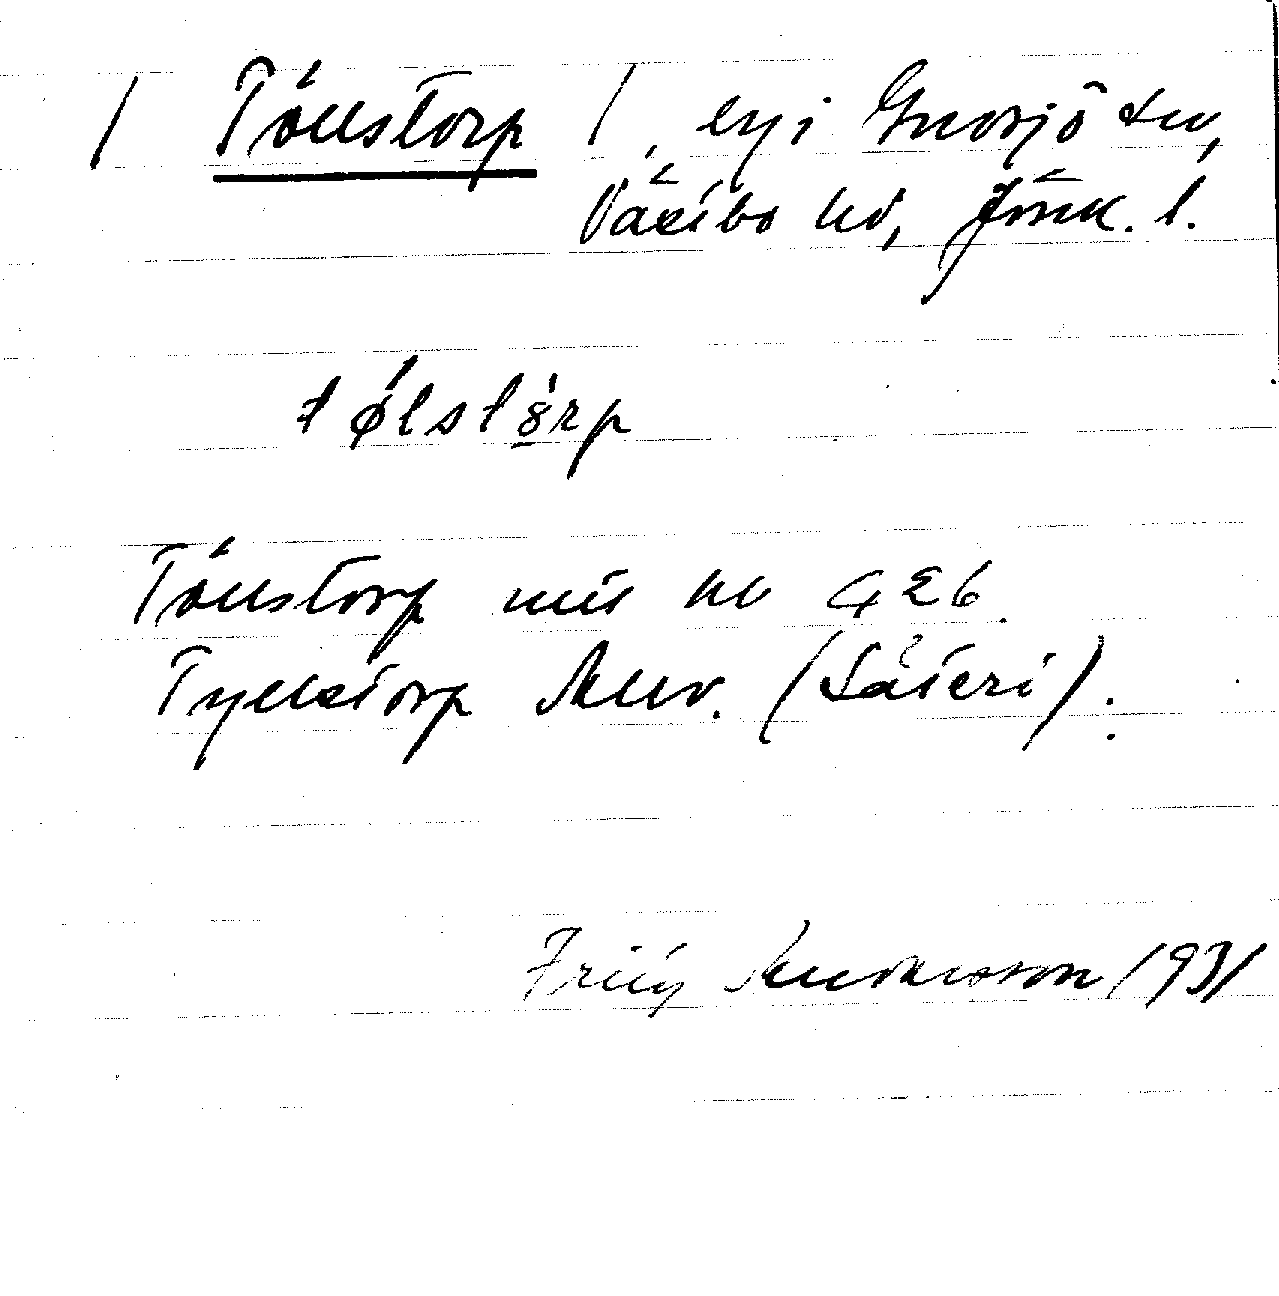 / Töllstorp /, by i Gnosjö sn,
Västbo hd, Jönk. l.
tølstòrp
Töllstorp mtl nb 426.
Tyllstorp Allv. (Säteri).
Fritz Andersson 1931